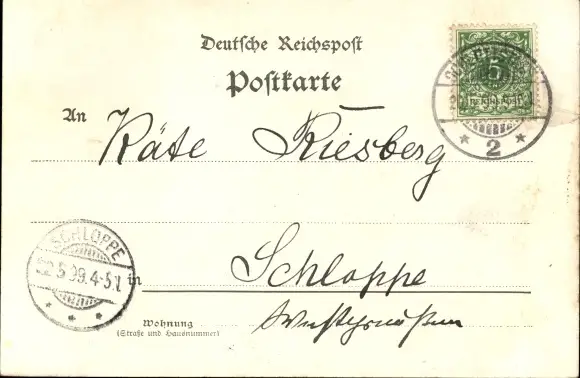 Deutsche Reichspost
Postkarte
5
REICHSPOST
2
An Käte Riesberg
SCHLOPPE
5 99. 4-5.N.
in Schloppe
Westpreußen
Wohnung
(Straße und Hausnummer)